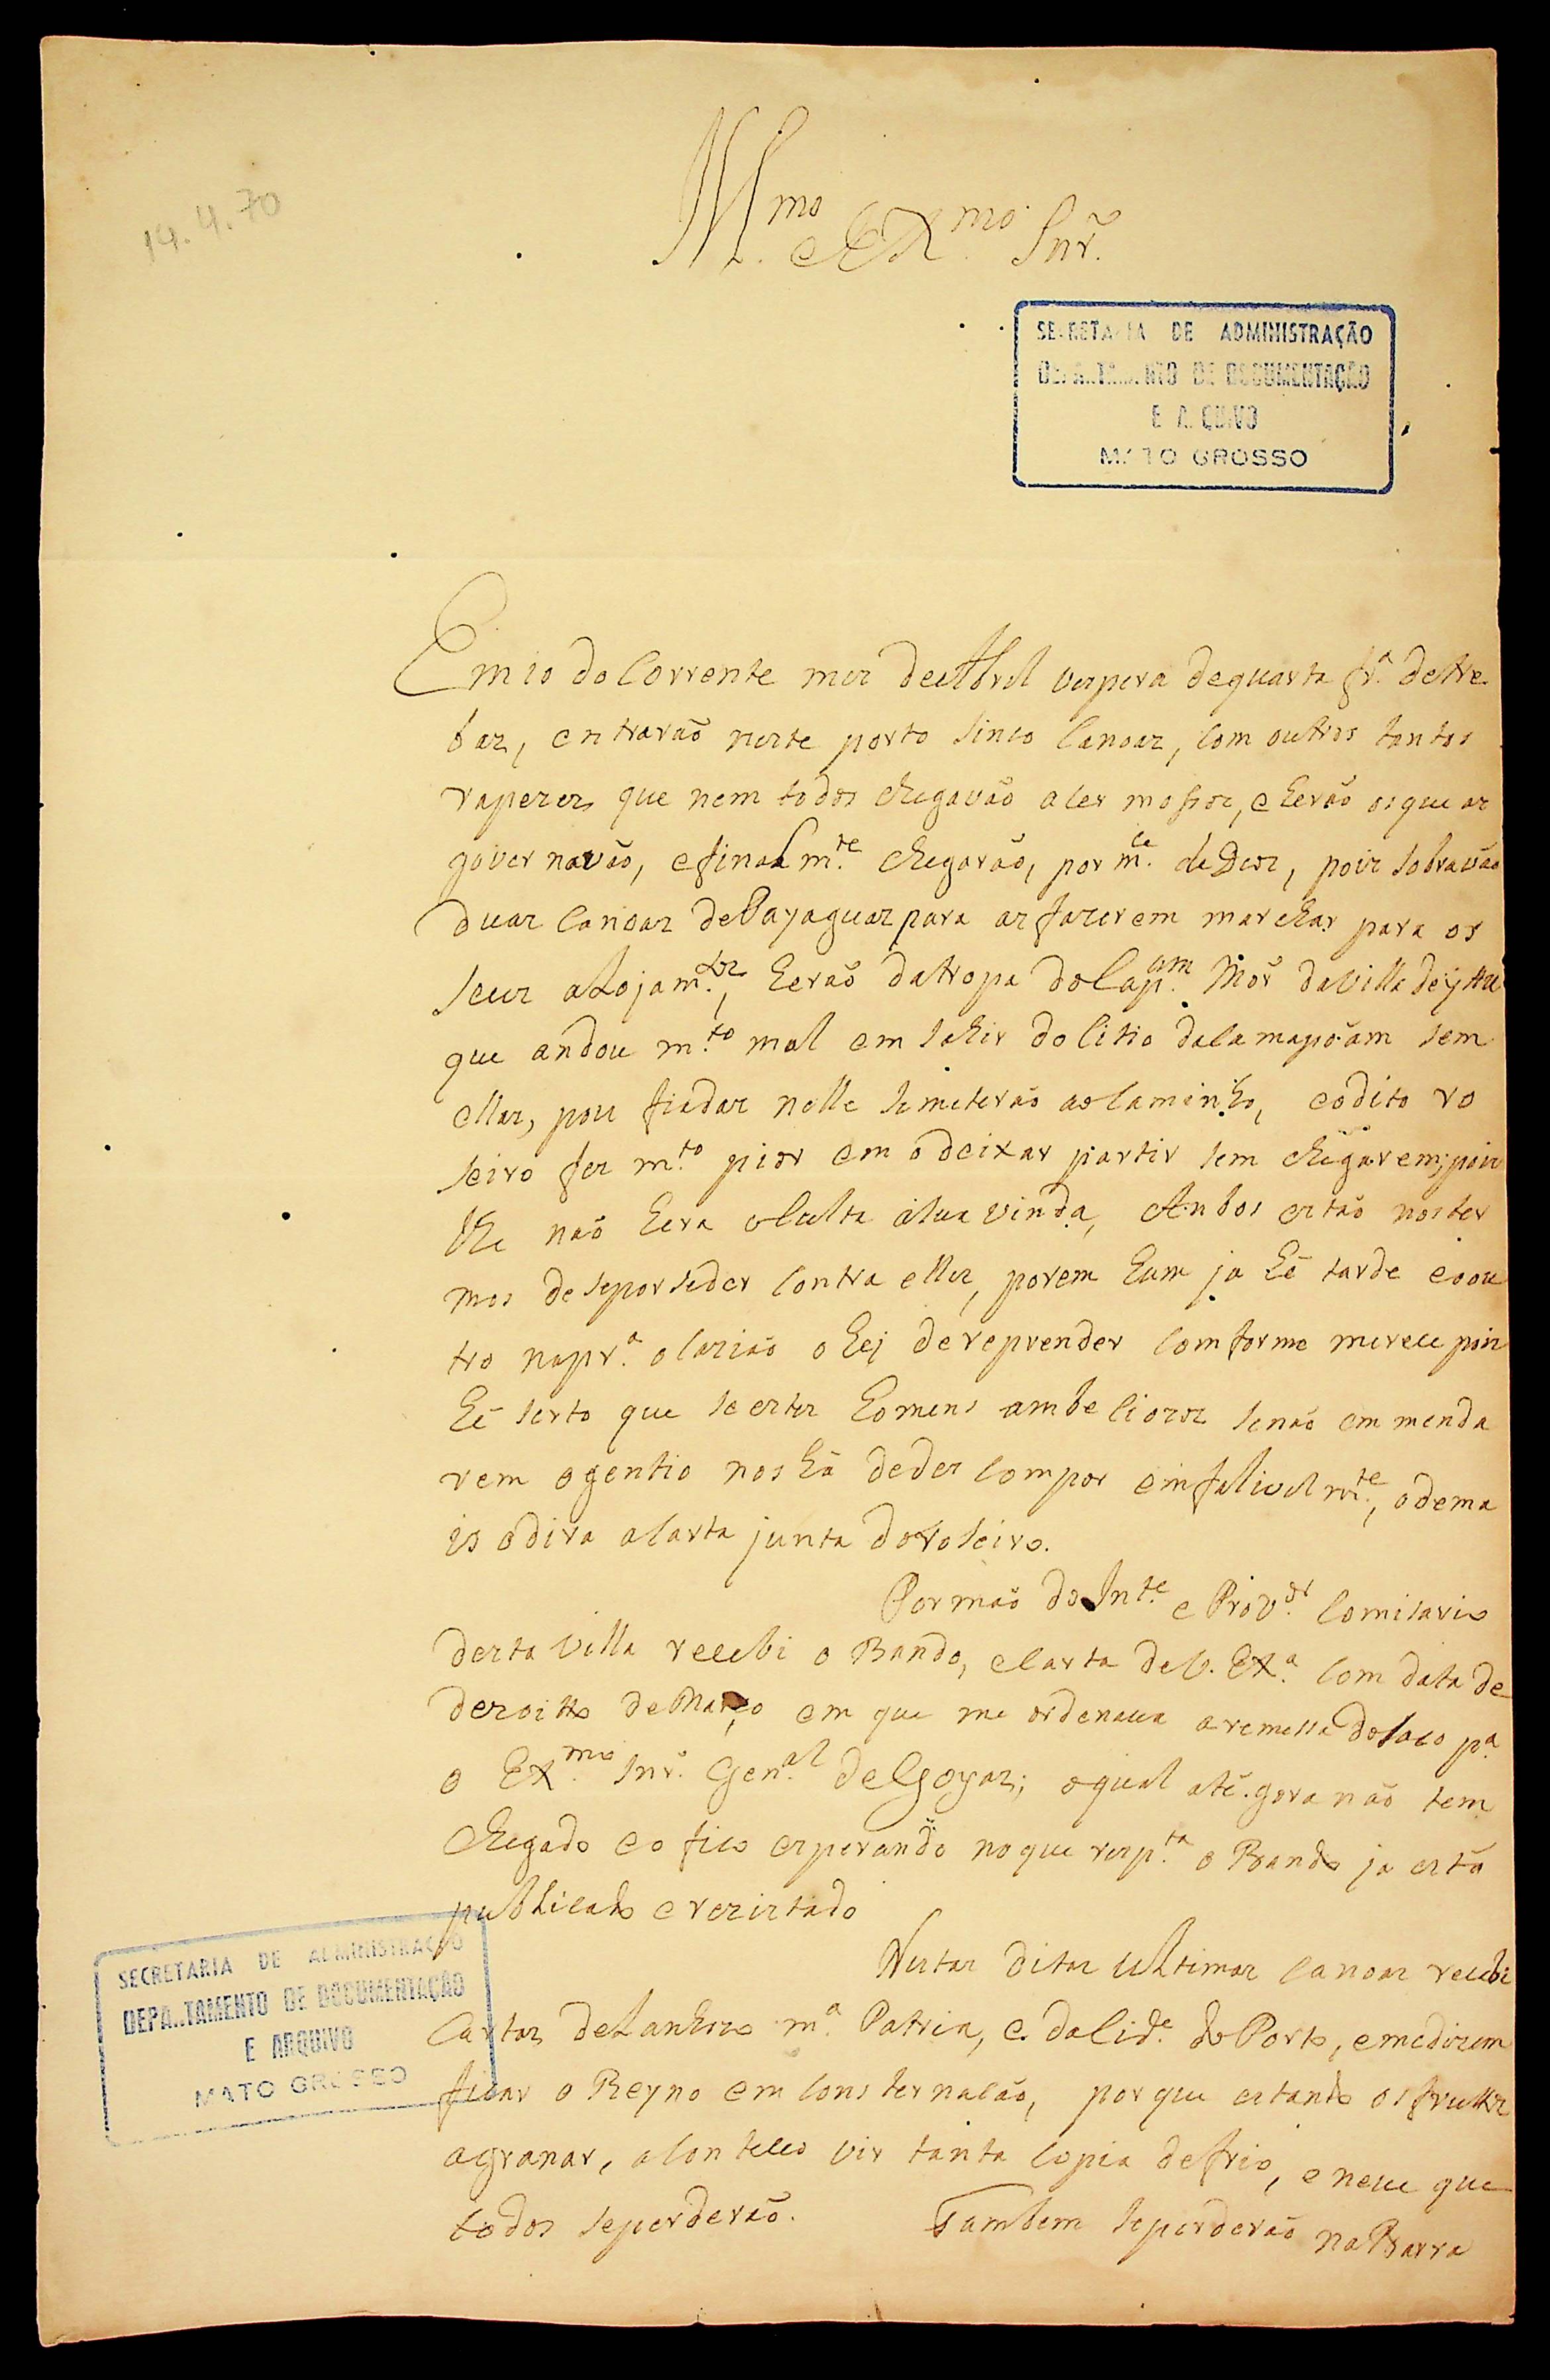 14.4.70
Ill.mo e Ex.mo Snr.
SECRETARIA DE ADMINISTRAÇÃO
DEPARTAMENTO DE DOCUMENTAÇÃO
E ARQUIVO
MATO GROSSO
Em 10 do Corrente mes de Abril vespera de quarta fr.ª de tre
bas, entrarão neste porto sinco Canoas, com outros tantos
rapezes que nem todos chegavão a ser mossos, e herão os que as
governavão, e finalm.te chegarão, por m.ce de Deos, pois sobravão
duas Canoas de Payaguas para as fazerem marchar para os
seus alojam.tos, herão da tropa do Cap.am Mór da Villa de ytu
que andou m.to mal em sahir do Citio de Camapoam sem
ellas, pois fiadas nelle se meterão ao Caminho, e o dito ro
seiro fes m.to pior em o deixar partir sem chegarem; pois
lhe não hera oculta a sua vinda, Ambos estão nos ter
mos de se porseder contra elles, porem hum ja hé tarde e o ou
tro na pr.ª ocazião o hei de reprender comforme merece pois
hé serto que se estes homens ambeciozos se não emmenda
rem o gentio nos há de des compor e infalivelm.te, o dema
is o dira a Carta junta do roseiro.
Por mão do Int.e e Prov.or Comisario
desta Villa recebi o Bando, e Carta de V. Ex.ª com data de
dezoitto de Março em que me ordenava a remessa do saco p.ª
o Ex.mo Snr. Gen.al de Goyas; o qual até.gora não tem
chegado e o fico esperando no que resp.ta o Bando ja está
publicado e rezistado
Nestas ditas ultimas Canoas recebi
Cartas de Lanhozo m.ª Patria, e da Cid.e do Porto, e me dizem
ficar o Reyno em consternacão, por que estando os fruttos
a granar, aconteceo vir tanta copia de frio, e neve que
todos se perderão. Tambem se perderão na Barra
SECRETARIA DE ADMINISTRAÇÃO
DEPARTAMENTO DE DOCUMENTAÇÃO
E ARQUIVO
MATO GROSSO